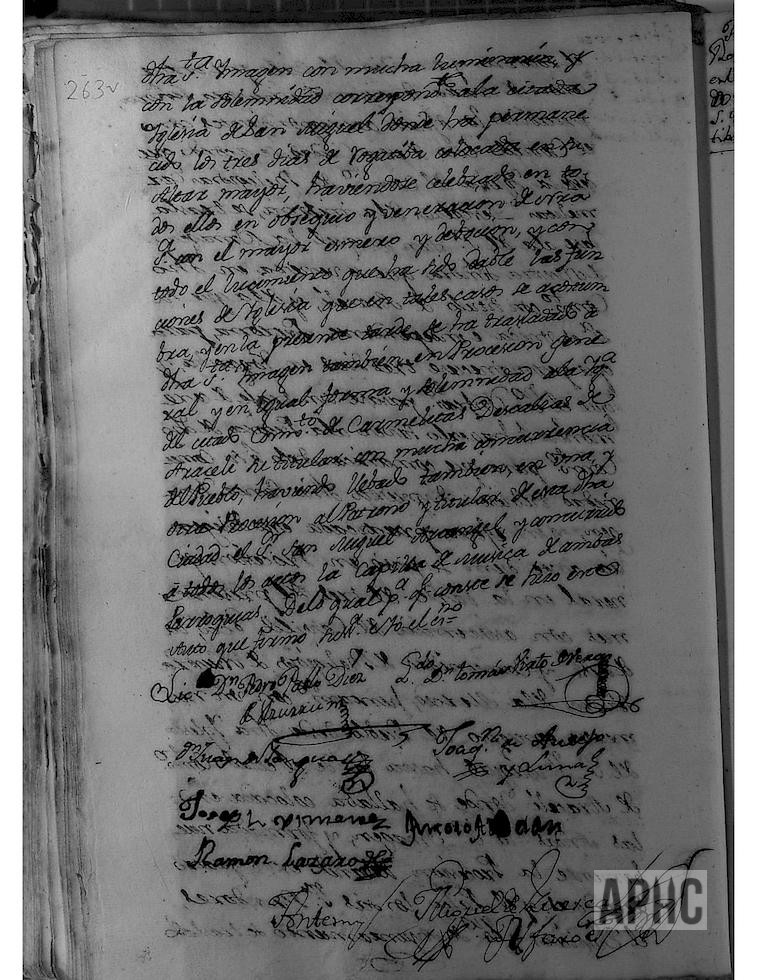 263v
dha S.ta Ymagen con mucha iluminacion, y
con la solemnidad correspond.te a la citada
Yglesia de San Miguel donde ha permane
cido los tres dias de Rogativa colocada en su
Altar mayor, haviendose celebrado en to-
dos ellos en obsequio y veneracion de Ntra
S.a con el mayor esmero y devocion, y con
todo el lucimiento que ha sido dable las fun
ciones de Yglesia que en tales casos se acostum
bra, y en la presente tarde se ha trasladado a
dha S.ta Ymagen tambien en Procesion gene
ral y en igual forma y solemnidad a la Yg.a
del citado Comb.to de Carmelitas Descalzas de
Araceli su titular con mucha concurrencia
del Pueblo, haviendo llebado tambien, en una, y
otra Procesion al Patrono y titular de esta dha
Ciudad el S.r San Miguel Arcangel, y concurrido
a todos los actos la Capilla de Musica de ambas
Parroquias, de lo qual p.a q.e conste se hizo este
Auto que firmó su S.a Yo el es.no
Lic.do Dn Pedro Pablo Diez
L.do Dn Tomás
de
Dn Juan
Joaq.n de
y Luna
Josef Ximenez
Ramon Lazaro
Antemi
Miguel de
Alfaro
APHC